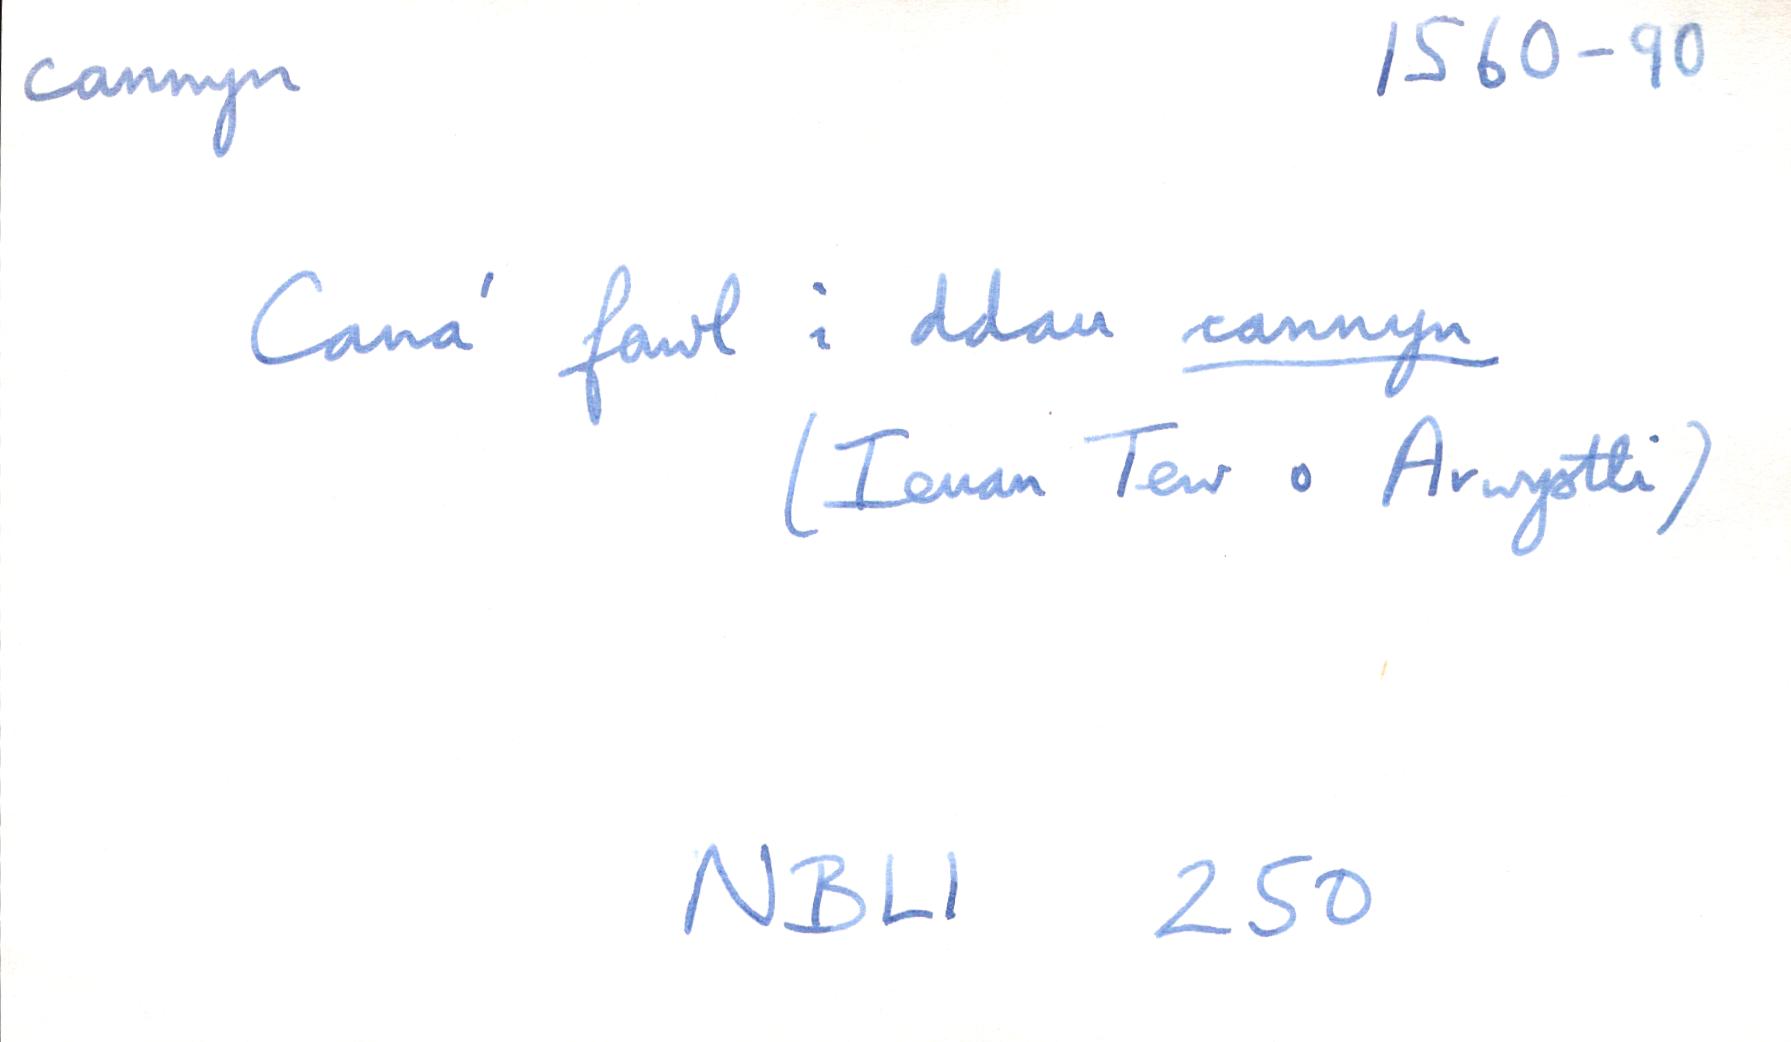 cannyn 1560-90
Cana' fawl i ddau cannyn
(Ieuan Tew o Arwystli)
NBLl 250